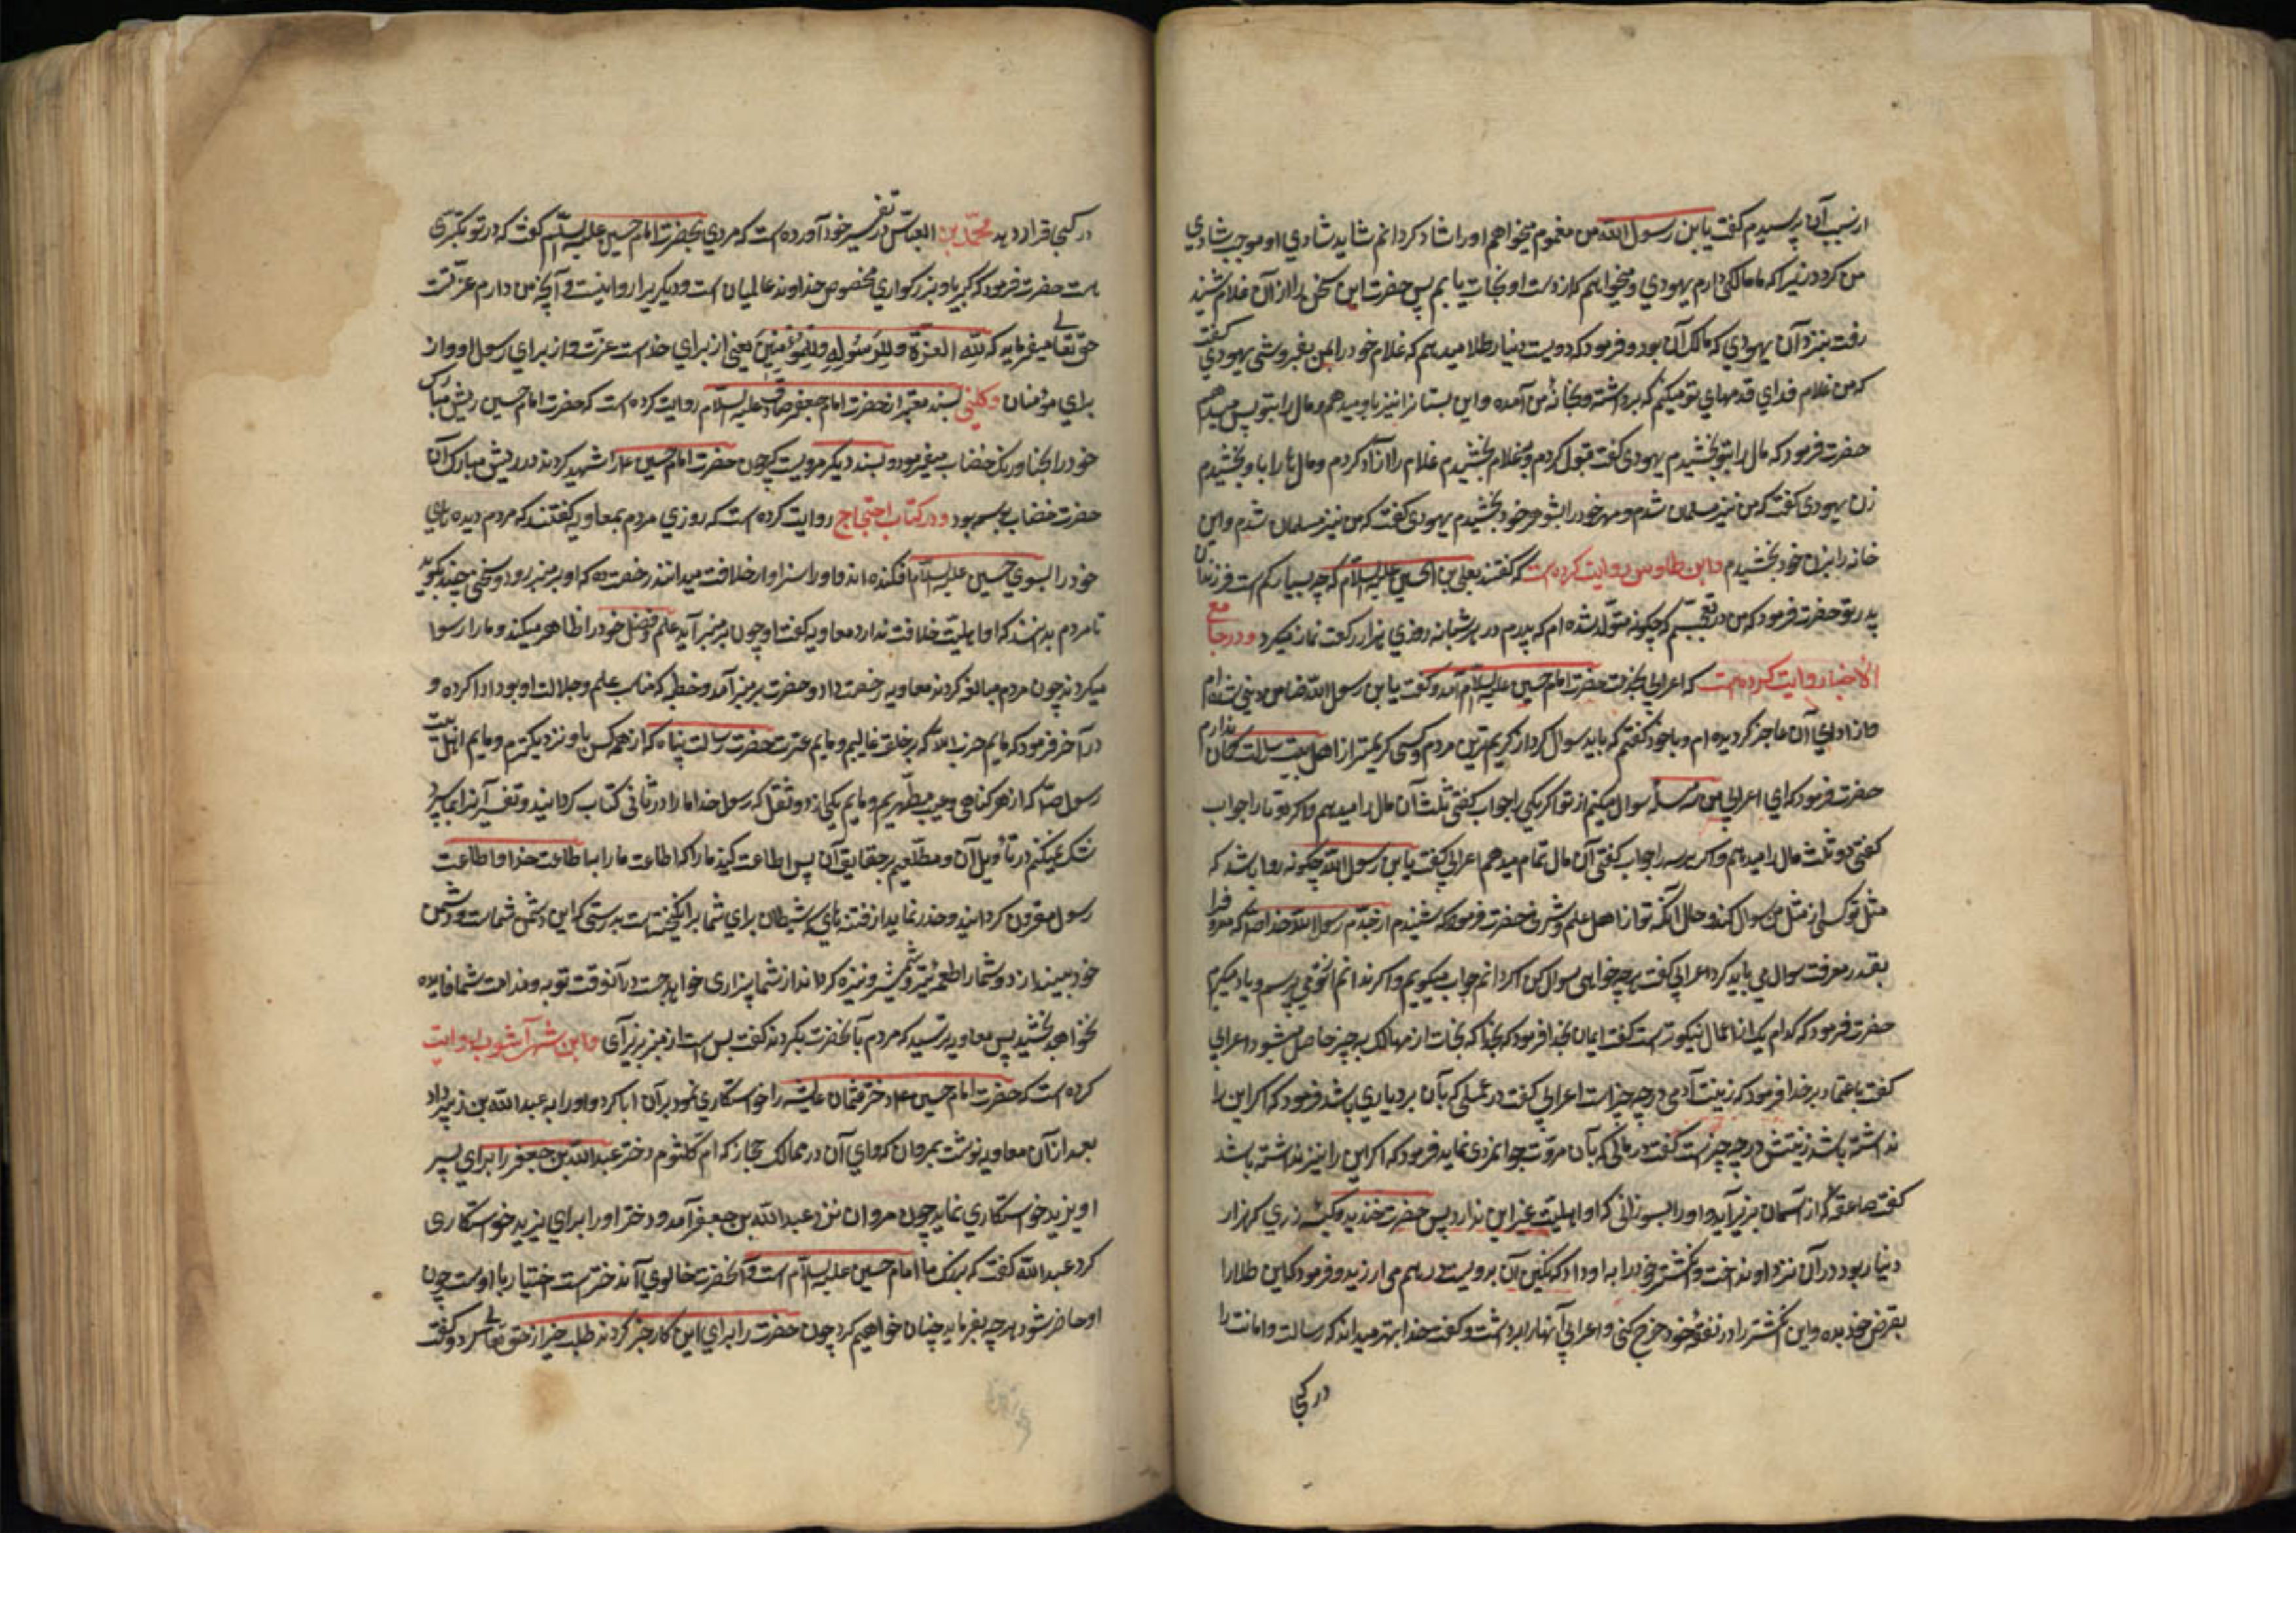 از سبب آن پرسیدم گفت یا بن رسول الله من مغموم میخواهم او را شاد کردانم شاید شادی او موجب شادی
من کردد زیرا که مالکی دارم یهودی و میخواهم که از دست او نجات یابم پس حضرت این سخن را از آن غلام شنید
رفت بنزد آن یهودی که مالک آن بود و فرمود که دویست دینار طلا میدهم که غلام خود را بمن بفروشی یهودی گفت
که من غلام فدای قدمهای تو میکنم که برداشته و بخانهٔ من آمده و این بستانرا نیز باو میدهم و مال را بتو پس میدهم
حضرت فرمود که مال را بتو بخشیدم یهودی گفت قبول کردم و بغلام بخشیدم غلام را آزاد کردم و مال ها را باو بخشیدم
زن یهودی گفت که من نیز مسلمان شدم و مهر خود را بشوهر خود بخشیدم یهودی گفت که من نیز مسلمان شدم و این
خانه را بزن خود بخشیدم و ابن طاوس روایت کرده است که گفتند بعلی بن الحسین علیه السلام که چه بسیار کم است فرزندان
پدر تو حضرت فرمود که من در تعجبم که چکونه متولد شده ام که پدرم در هر شبانه روزی هزار رکعت نماز میکرد و در جامع
الاخبار روایت کرده است که اعرابی بخدمت حضرت امام حسین علیه السلام آمد و گفت یا بن رسول الله ضامن دیتی شده ام
و از ادای آن عاجز کردیده ام و با خود گفتم که باید سوال کرد از کریم ترین مردم و کسی کریمتر از اهل بیت رسالت گمان ندارم
حضرت فرمود که ای اعرابی من سه مسأله سوال میکنم از تو اکر یکی را جواب گفتی ثلث آن مال را میدهم و اکر دو تا را جواب
گفتی دو ثلث مال را میدهم و اکر هر سه را جواب گفتی آن مال تمام میدهم اعرابی گفت یا بن رسول الله چکونه روا باشد که
مثل تو کسی از مثل من سوال کند و حال آنکه تو از اهل علم و شرفی حضرت فرمود که شنیدم از جدم رسول الله خدا ص که معروف را
بقدر معرفت سوال می باید کرد اعرابی گفت هرچه خواهی سوال کن اکر دانم جواب میکویم و اکر ندانم از تو می پرسم و یاد میکیرم
حضرت فرمود که کدام یک از اعمال نیکوتر است گفت ایمان بخدا فرمود که بخدا که نجات از مهالک بچه چیز حاصل میشود اعرابی
گفت باعتماد بر خدا فرمود که زینت آدمی در چه چیز است اعرابی گفت در عملی که بآن بردباری باشد فرمود که اکر این را
نداشته باشد زینتش در چه چیز است گفت در مالی که بآن مروت جوانمردی نماید فرمود که اکر این را نیز نداشته باشد
گفت صاعقه که از آسمان بزیر آید و او را بسوزانی که او اهلیت غیر این ندارد پس حضرت خندید و کیسه زری که هزار
دینار بود در آن نزد او انداخت و انکشتر خود را به او داد که نکین آن بدویست درهم می ارزید و فرمود که این طلا را
بقرض خود بده و این انکشتر را در نفقهٔ خود خرج کنی و اعرابی آنها را برداشت و گفت خدا بهتر میداند که رسالت و امانت را
در کجا
در کجا قرار دهد محمد بن العباس در تفسیر خود آورده است که مردی بحضرت امام حسین علیه السلام گفت که در تو تکبری
است حضرت فرمود که کبریا و بزرکواری مخصوص خداوند عالمیان است و دیکریرا روا نیست و آنچه من دارم عزتست
حق تعالی میفرماید که لله العزة ولرسوله وللمؤمنین یعنی از برای خداست عزت و از برای رسول او و از
برای مؤمنان و کلینی بسند معتبر از حضرت امام جعفر صادق علیه السلام روایت کرده است که حضرت امام حسین ریش مبارک
خود را بحنا و رنک خضاب میفرمود و بسند دیکر مرویست که چون حضرت امام حسین ع را شهید کردند در ریش مبارک آن
حضرت خضاب وسمه بود و در کتاب احتجاج روایت کرده است که روزی مردم بمعاویه گفتند که مردم دیده های
خود را بسوی حسین علیه السلام افکنده اند و او را سزاوار خلافت میدانند رخصت ده که او بر منبر رود و سخنی چند بکوید
تا مردم بدانند که او اهلیت خلافت ندارد معاویه گفت او چون بر منبر آید علم و فضل خود را ظاهر میکند و ما را رسوا
میکرداند چون مردم مبالغه کردند معاویه رخصت داد و حضرت بر منبر آمد و خطبه که مناسب علم و جلالت او بود ادا کرده و
در آخر فرمود که مایم حزب الله که بر خلق غالبیم و مایم عترت حضرت رسالت پناه که از همه کس باو نزدیکتریم و مایم اهل بیت
رسول ص که از هر کناهی و عیب مطهریم و مایم یکی از دو ثقل که رسول خدا ما را در ثانی کتاب کردانید و تفسیر آنرا بما سپرد
شک نمیکنیم در تأویل آن و مطلعیم بر حقایق آن پس اطاعت کنید ما را که اطاعت ما را با طاعت خدا و اطاعت
رسول مقرون کردانید و حذر نماید از فتنه های که شیطان برای شما برانکیخته است بدرستی که این دشمن شماست و دشمن
خود میندازد و شما را طعمهٔ تیر و شمشیر و نیزه کرداند از شما بیزاری خواهد جست در آنوقت توبه و ندامت شما فایده
نخواهد بخشید پس معاویه ترسید که مردم بآنحضرت بکردند گفت بس است از منبر زیر آی و ابن شهر آشوب روایت
کرده است که حضرت امام حسین ع دختر عثمان عایشه را خواستکاری نمود بر آن ابا کرد و او را به عبدالله بن زبیر داد
بعد از آن معاویه نوشت بمروان که والی آن در ممالک حجاز که ام کلثوم دختر عبدالله بن جعفر را برای پسر
او یزید خواستکاری نماید چون مروان نزد عبدالله بن جعفر آمد و دختر او را برای یزید خواستکاری
کرد عبدالله گفت که بزرک ما امام حسین علیه السلام است و آنحضرت خالوی آن دختر است اختیار با اوست چون
او حاضر شود هرچه بفرماید چنان خواهیم کرد چون حضرت را برای این کار خبر کردند طلب خیر از حق تعالی کرد و گفت